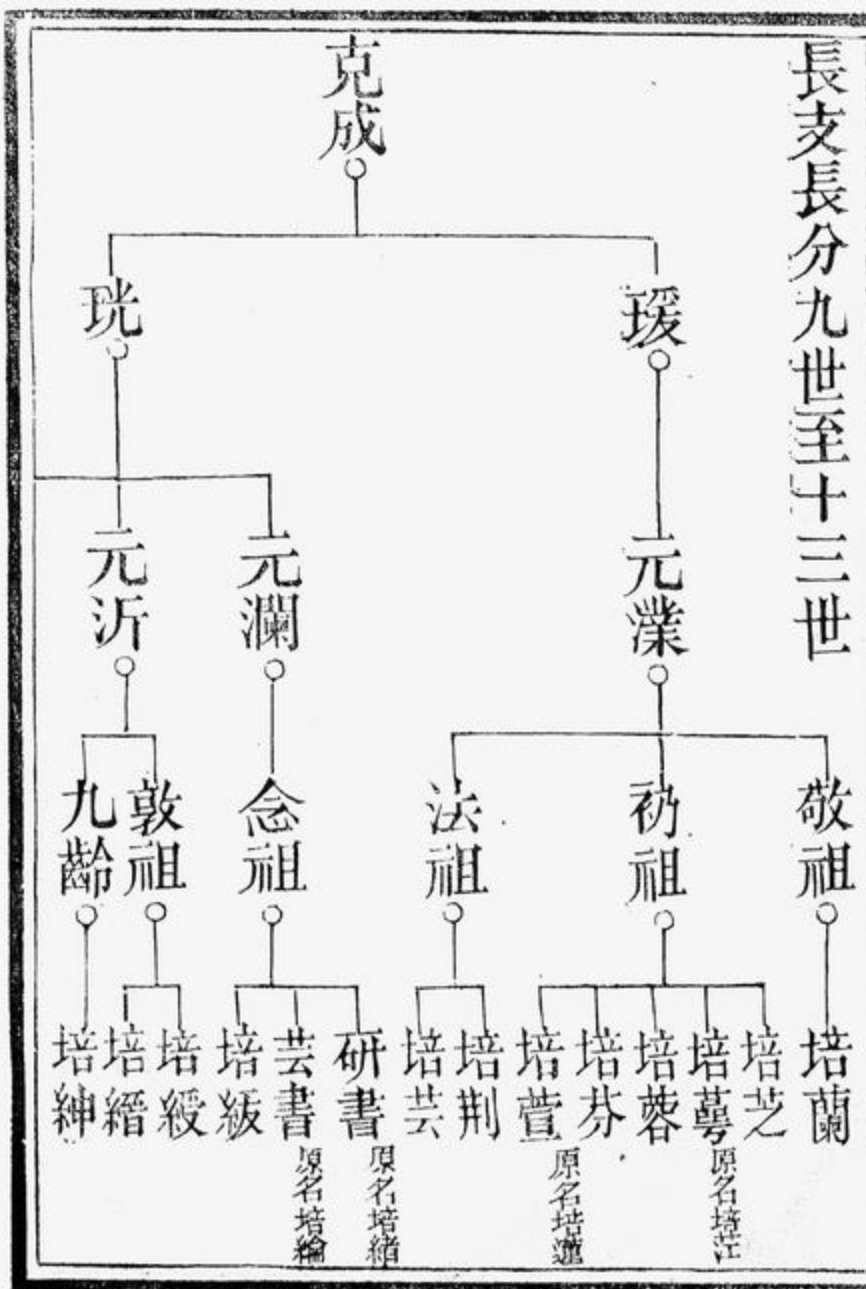 長支長分九世至十三世
克成
瑗
珖
元澲
元瀾
元沂
敬祖
礽祖
法祖
念祖
敦祖
九齡
培蘭
培芝
培萼
原名培茳
培蓉
培芬
培萱
原名培蓮
培荆
培芸
研書
原名培緒
芸書
原名培綸
培級
培綬
培縉
培紳